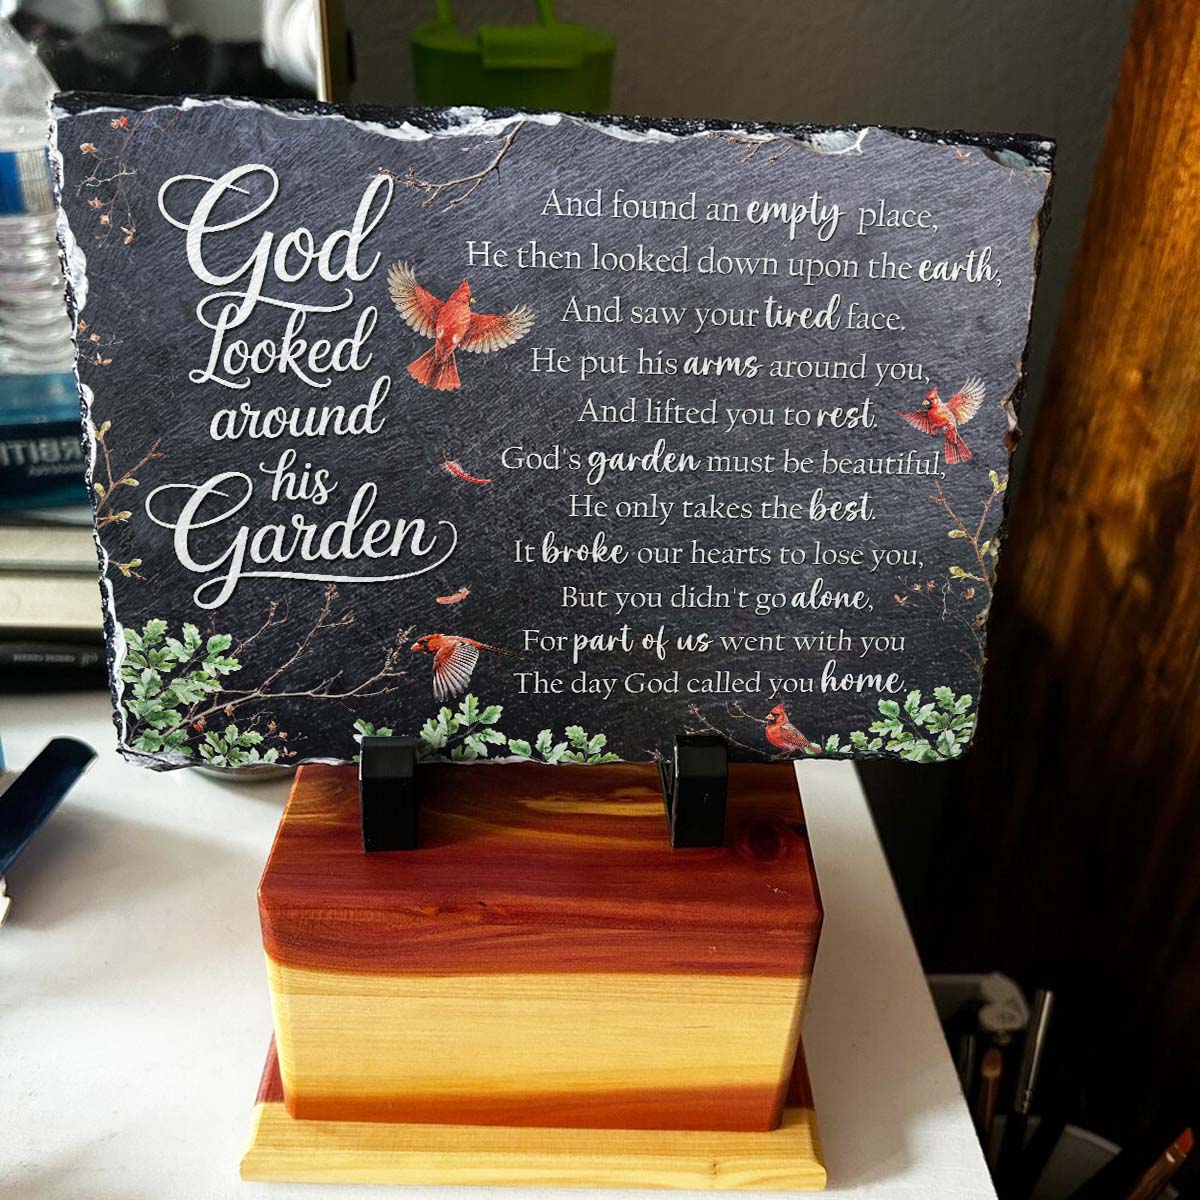 God
Looked
around
his
Garden
And found an empty place,
He then looked down upon the earth,
And saw your tired face.
He put his arms around you,
And lifted you to rest.
God's garden must be beautiful,
He only takes the best.
It broke our hearts to lose you,
But you didn't go alone,
For part of us went with you
The day God called you home.